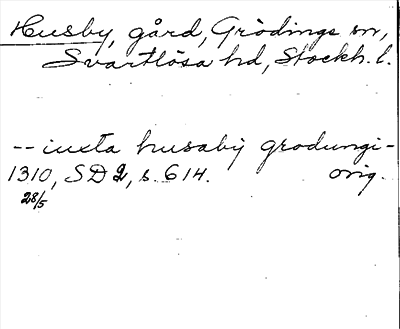 Husby, gård, Grödinge sn,
Svartlösa hd, Stockh. l.
-- iuxta husaby grodungi-
1310, SD 2, s. 614. orig.
28/5